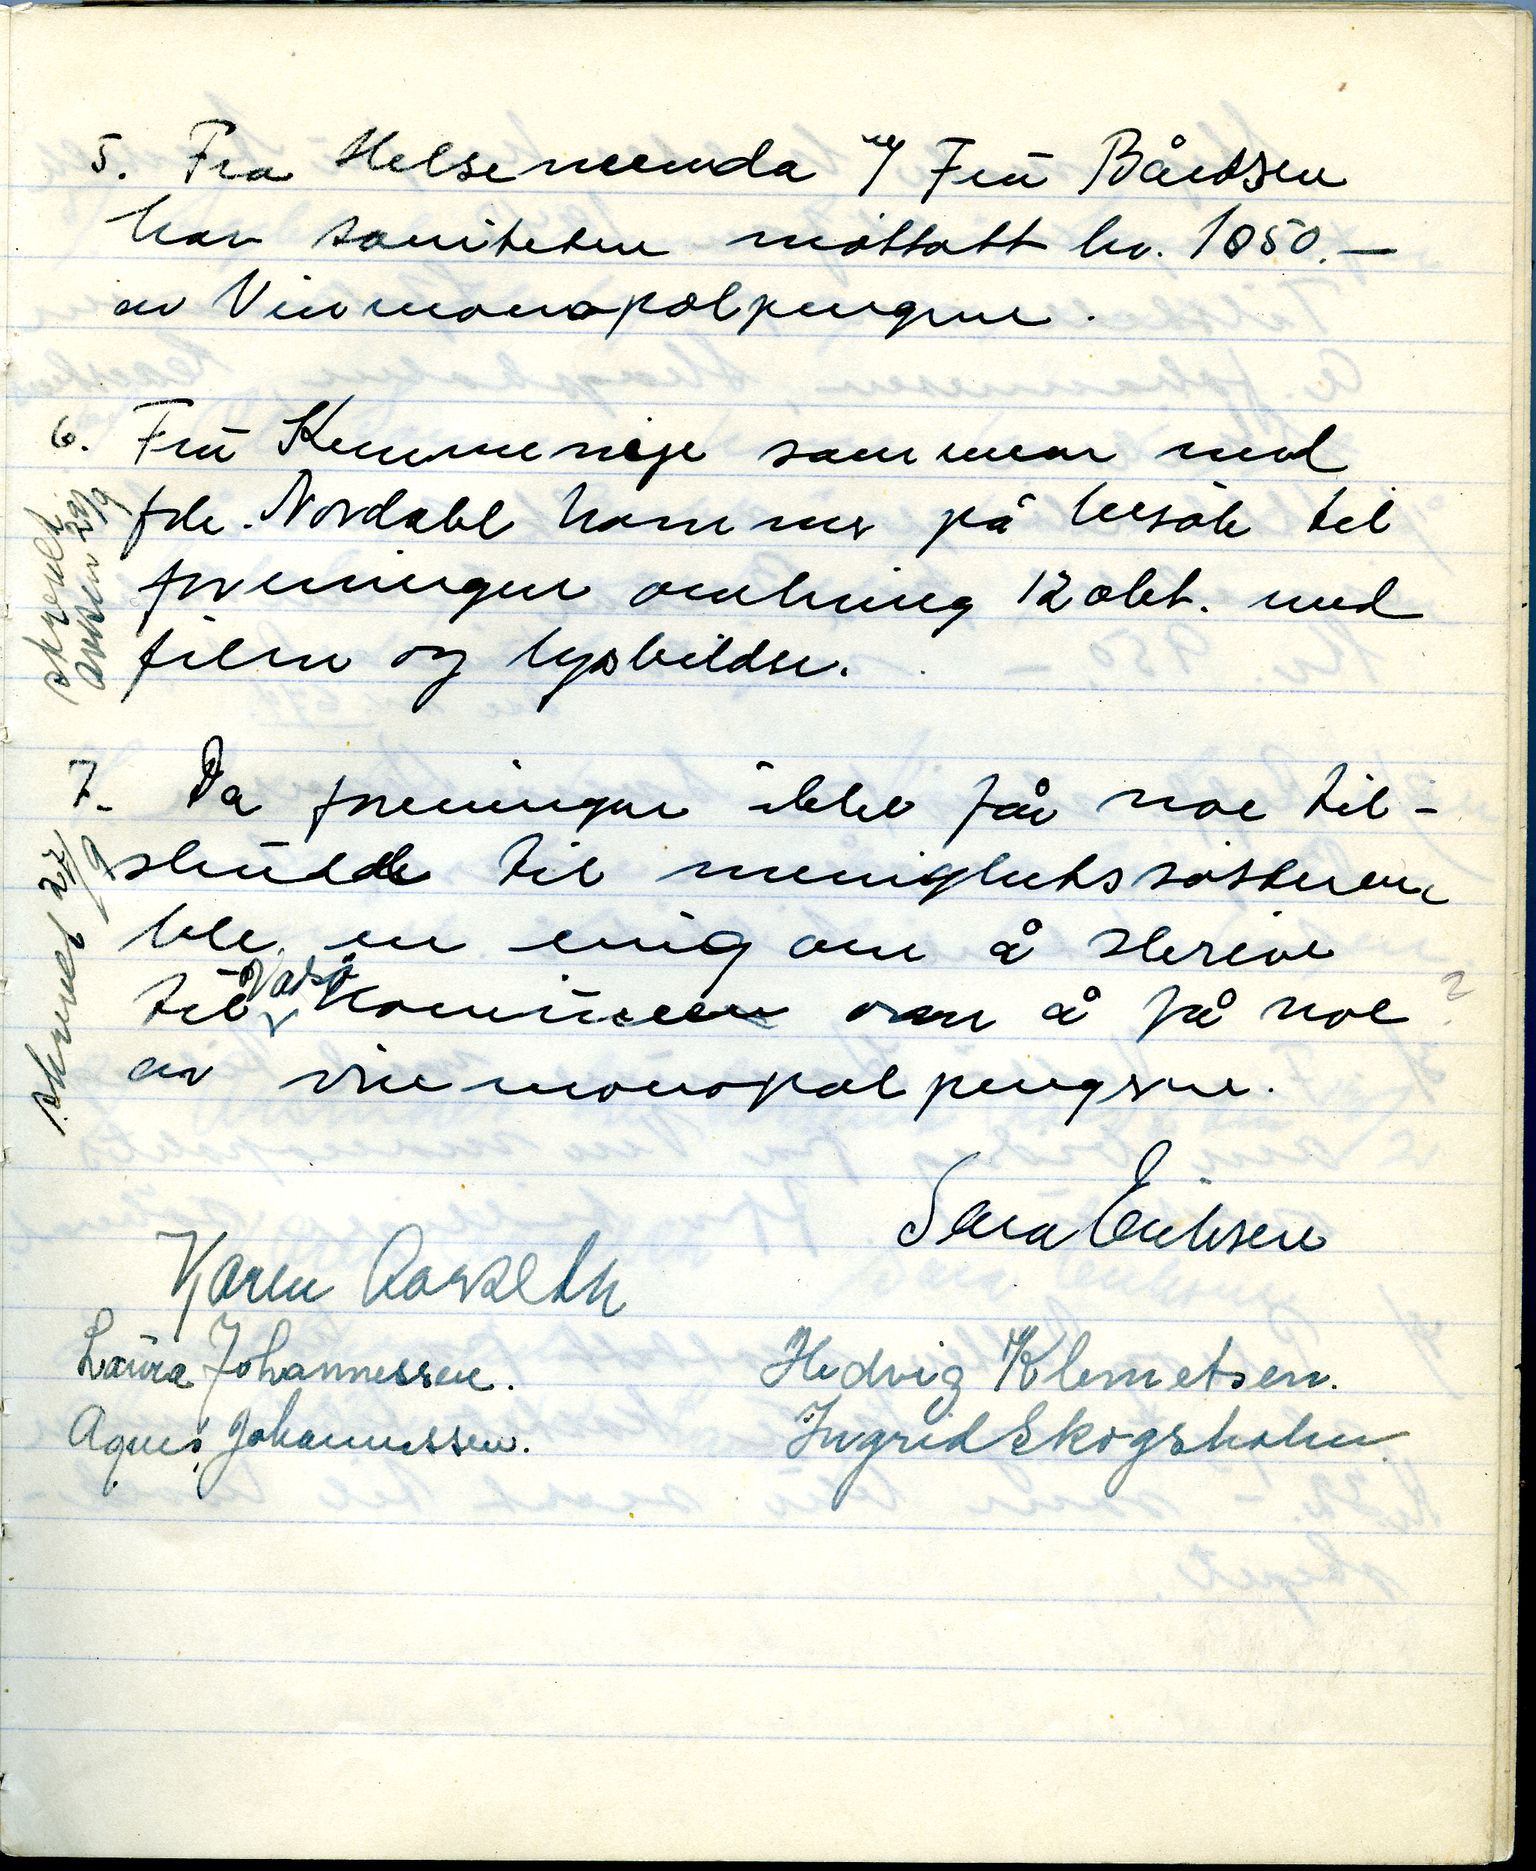 5. Fra Helsenemnda v/ Frü Bårdsen
har saniteten mottatt kr. 1050.–
av Vinmonopolpengene.
6. Frü Kummeneje sammen med
frk. Nordahl kommer på besøk til
foreningen omkring 12 okt. med
film og lysbilder.
skrevet
avsen 29/9
7. Da foreningen ikke får noe til-
skudd til menighetssøsteren
ble en enig om å skrive
til Vadsø Kommune om å få noe
av vinmonopolpengene.
skrevet 27/9
Sara Eriksen
Karen Aarseth
Laüra Johannessen.
Hedvig Klemetsen.
Agnes Johannessen.
Ingrid Skogsholm